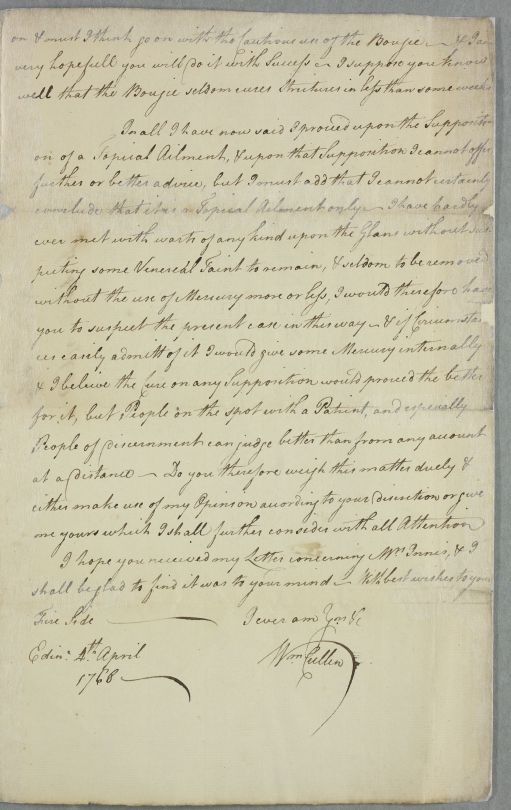 on & must I think go on with the Cautious use of the Bougie — & I am
very hopefull you will do it with Success — I suppose you know
well that the Bougie seldom cures Strictures in less than some weeks
In all I have now said I proceed upon the Suppositi-
on of a Topical Ailment, & upon that Supposition I cannot offer
further or better advice, but I must add that I cannot certainly
conclude that it is a Topical Ailment only — I have hardly
ever met with warts of any kind upon the Glans without sus
pecting some Venereal Taint to remain, & seldom to be removed
without the use of Mercury more or less, I would therefore have
you to suspect the present case in this way — & if Circumstan
ces easily admitt of it I would give some Mercury internally
& I beleive the Cure on any Supposition would proceed the better
for it, but People on the spot with a Patient, and especially
People of discernment can judge better than from any account
at a distance — Do you therefore weigh this matter duely &
either make use of my Opinion according to your discretion or give
me yours which I shall further consider with all Attention
I hope you received my Letter concerning Mrs Innes, & I
shall be glad to find it was to your mind — With best wishes to your
Fire Side — I ever am Yrs &c
Edinr. 4th April Wm Cullen
1768